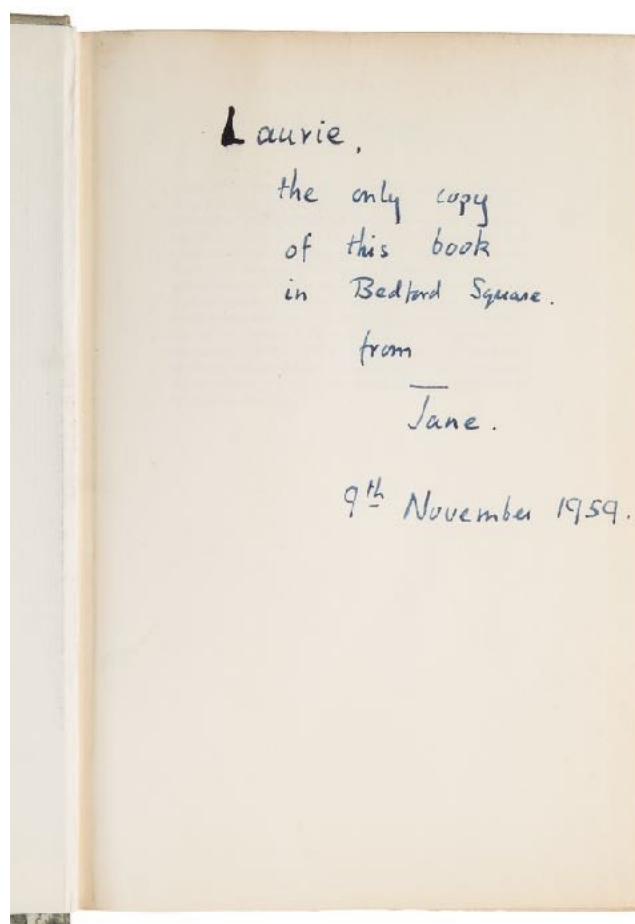 Laurie,
the only copy
of this book
in Bedford Square.
from
Jane.
9th November 1959.